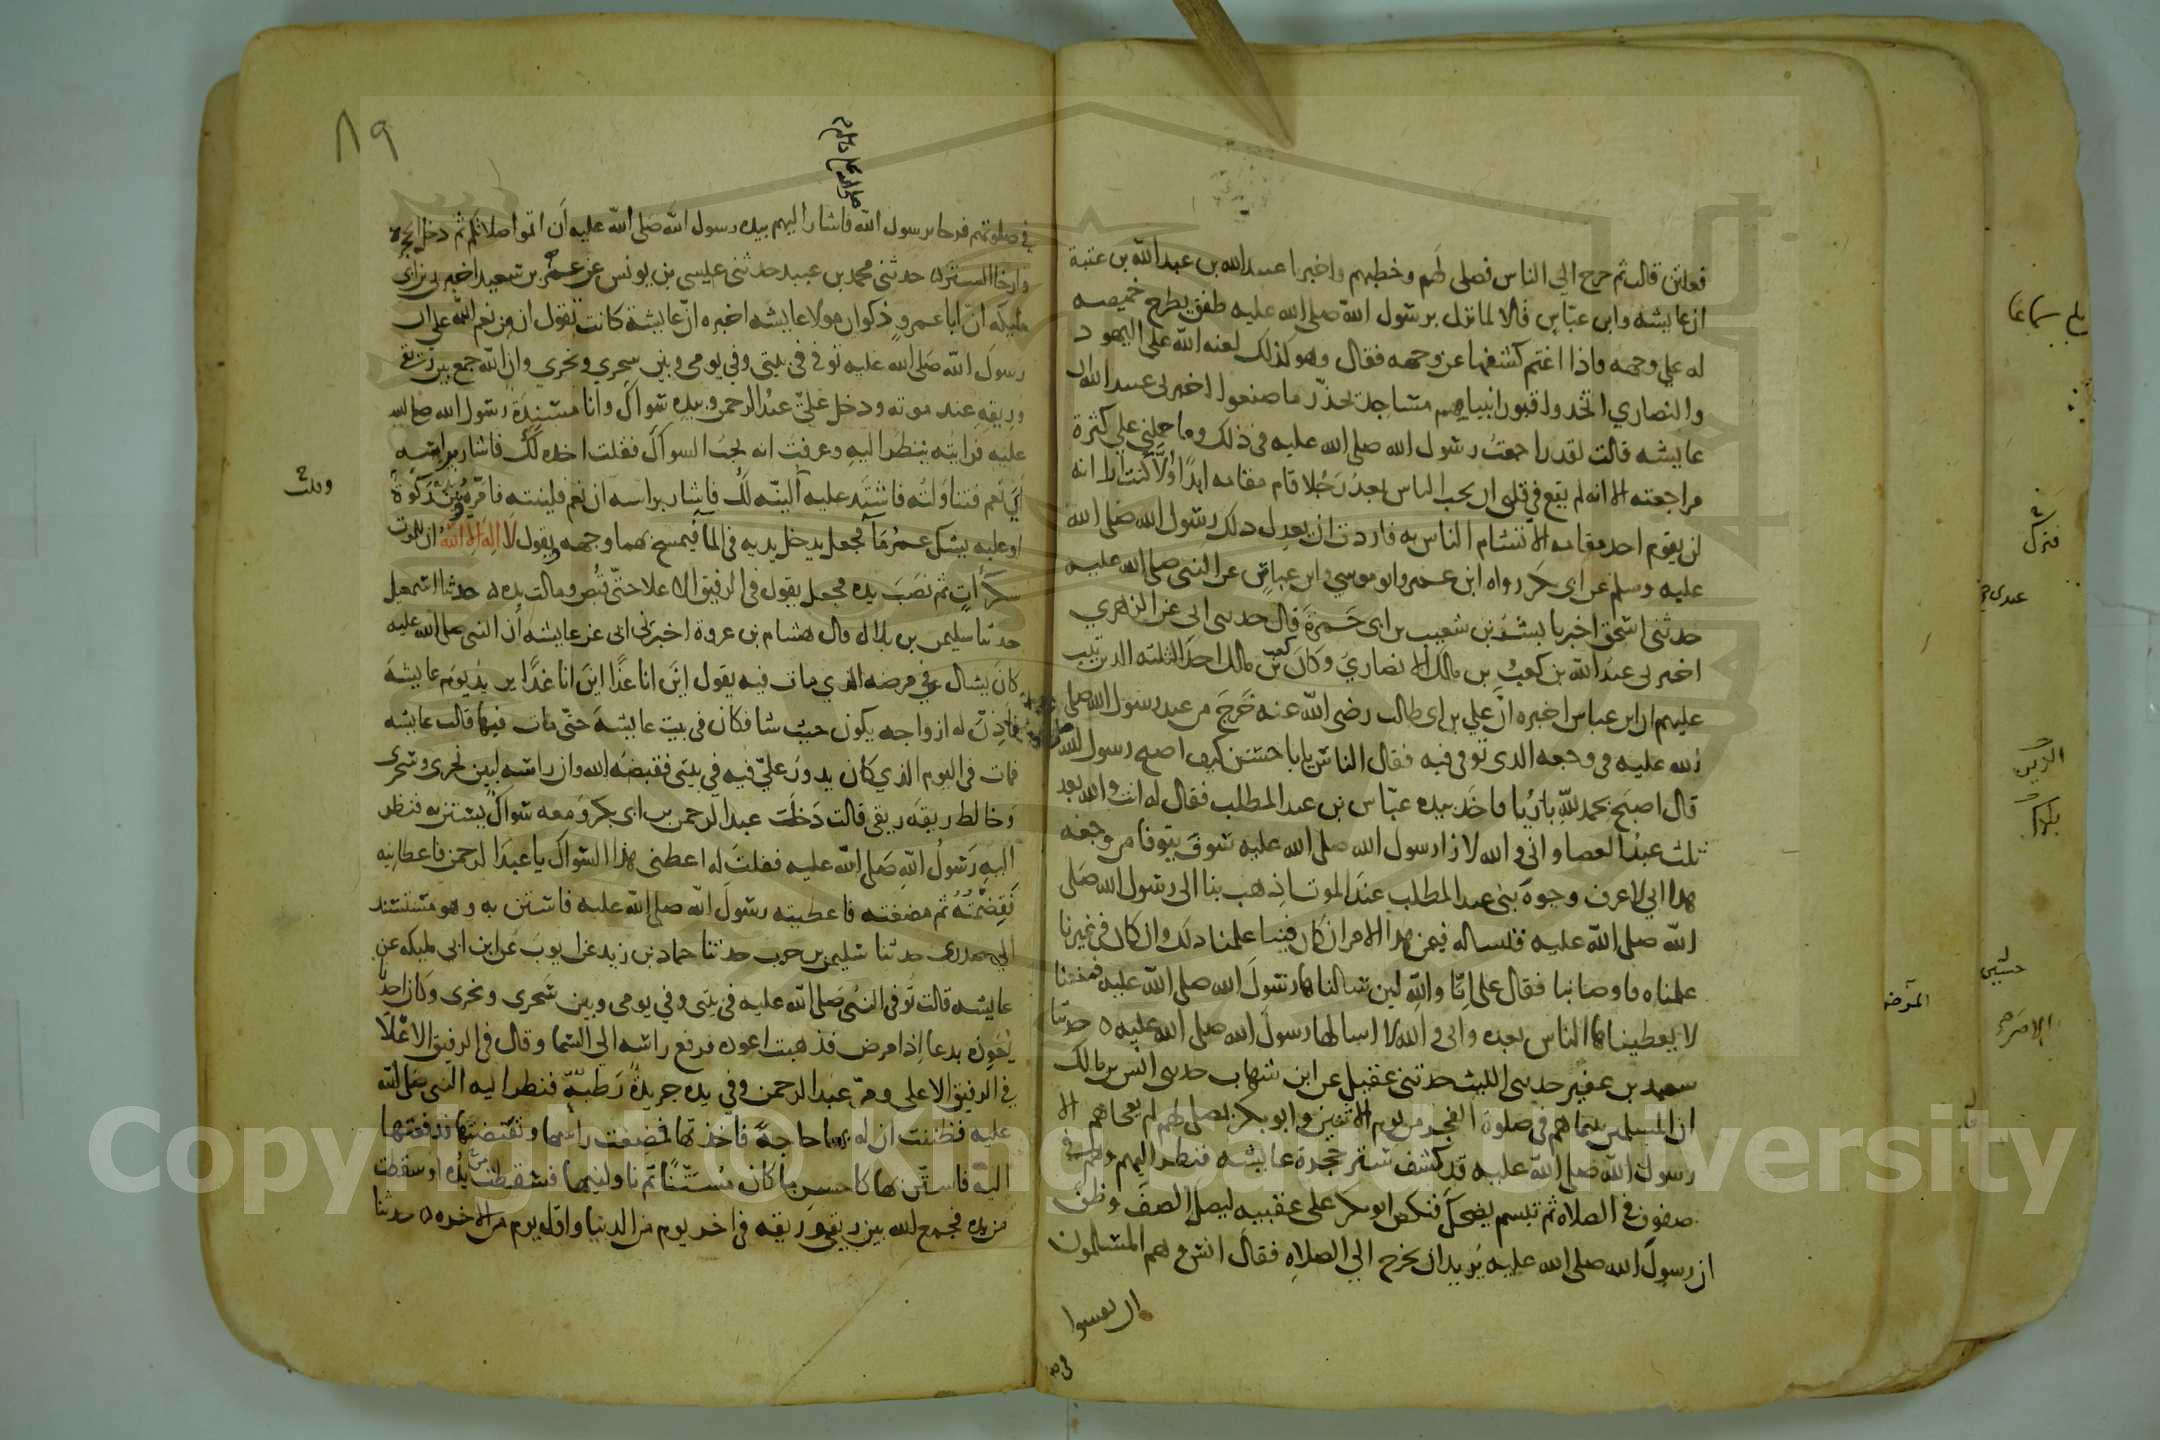 فعلتن قالت ثم خرج الي الناس فصلى لهم وخطبهم واخبرنا عبيد الله بن عبد الله بن عتبة
ان عايشه وابن عباس قالا لما نزل برسول الله صلى الله عليه طفق يطرح خميصه
له علي وجهه فاذا اغتم كشفها عن وجهه فقال وهو كذلك لعنه الله على اليهود
والنصاري اتخدوا قبور انبياهم مساجد يحذر ما صنعوا اخبرني عبيد الله ان
عايشه قالت لقد راجعت رسول الله صلى الله عليه في ذلك وما حملني علي كثرة
مراجعته الا انه لم يقع في قلبي ان يحب الناس بعده رجلا قام مقامه ابدا ولا كنت ارا انه
لن يقوم احد مقامه الا تشام الناس به فاردت ان يعدل ذلك رسول الله صلى الله
عليه وسلم عن ابي بكر رواه ابن عمر وابو موسي وابن عباس عن النبي صلى الله عليه
حدثني اسحق اخبرنا بشر بن شعيب بن ابي حمزة قال حدثني ابي عن الزهري
اخبرني عبد الله بن كعب بن مالك الانصاري وكان كعب بن مالك احد الثلثه الذين تيب
عليهم ان ابن عباس اخبره ان علي بن ابي طالب رضي الله عنه خرج من عند رسول الله صلى
الله عليه في وجعه الذي توفي فيه فقال الناس يابا حسن كيف اصبح رسول الله
قال اصبح بحمد لله باريا فاخذ بيده عباس بن عبد المطلب فقال له انت والله بعد
ثلث عبد العصا واني والله لارا رسول الله صلى الله عليه سوف يتوفا من وجعه
هذا اني لاعرف وجوه بني عبد المطلب عند الموت اذهب بنا الى رسول الله صلى
الله صلى الله عليه فلنساله فيمن هذا الامر ان كان فينا علمنا ذلك وان كان في غيرنا
علمناه فاوصا بنا فقال علي انا والله لين سالناها رسول الله صلى الله عليه فمنعنا
لا يعطيناها الناس بعده واني والله لا اسالها رسول الله صلى الله عليه ه حدثنا
سعيد بن عفير حدثني الليث حدثني عقيل عن ابن شهاب حدثني انس بن مالك
ان المسلمين بينما هم في صلوة الفجر من يوم الاثنين وابو بكر يصلي لهم لم يفجاهم الا
رسول الله صلى الله عليه قد كشف ستر حجرة عايشه فنظر اليهم وهم في
صفوف في الصلاه ثم تبسم يضحك فنكص ابو بكر على عقبيه ليصل الصف وظن
ان رسول الله صلى الله عليه يريد ان يخرج الي الصلاه فقال انس وهم المسلمون
ان يفتتنوا
في صلو
٨٩
صلى الله عليه وسلم
في صلوتهم فرحا برسول الله فاشار اليهم بيده رسول الله صلى الله عليه ان اتموا صلاتكم ثم دخل الحجرة
وارخا الستر ه حدثني محمد بن عبيد حدثني عيسى بن يونس عن عمر بن سعيد اخبرني بن ابي
مليكه ان ابا عمرو ذكوان مولا عايشه اخبره ان عايشة كانت تقول ان من نعم الله علي ان
رسول الله صلى الله عليه توفي في بيتي وفي يومي وبين سحري ونحري وان الله جمع بين ريقي
وريقه عند موته ودخل علي عبد الرحمن وبيده سواك وانا مسندة رسول الله صلى الله
عليه فرايته ينظر اليه وعرفت انه يحب السواك فقلت اخذه لك فاشار براسه
اي نعم فتناولته فاشتد عليه الينه لك فاشار براسه ان نعم فلينته فامره وبين يديه ركوة
او علبه يشك عمر ما فجعل يدخل يديه في الما فيمسح بهما وجهه ويقول لا اله الا الله ان للموت
سكرات ثم نصب يده فجعل يقول في الرفيق الاعلا حتى قبض ومالت يده ه حدثنا اسمعيل
حدثنا سليمن بن بلال قال هشام بن عروة اخبرني ابي عن عايشه ان النبي صلى الله عليه
كان يسال في مرضه الذي مات فيه يقول اين انا غدا اين انا غدا يريد يوم عايشة
فاذن له ازواجه يكون حيث شا فكان في بيت عايشة حتى مات فيها قالت عايشه
فمات في اليوم الذي كان يدور علي فيه في بيتي فقبضه الله وان راسه لبين نحري وسحري
وخالط ريقه ريقي قالت دخلت عبد الرحمن بن ابي بكر ومعه سواك يستن به فنظر
اليه رسول الله صلى الله عليه فقلت له اعطني هذا السواك يا عبد الرحمن فاعطانيه
فقضمته ثم مضغته فاعطيته رسول الله صلى الله عليه فاستن به وهو مستسند
الي صدري حدثنا سليمن بن حرب حدثنا حماد بن زيد عن ايوب عن ابن ابي مليكه عن
عايشه قالت توفي النبي صلى الله عليه في بيتي وفي يومي وبين سحري ونحري وكان احدنا
يعوذه بدعا اذا مرض فذهبت اعوذه فرفع راسه الي السما وقال في الرفيق الاعلا
في الرفيق الاعلى ومر عبد الرحمن وفي يده جريدة رطبة فنظر اليه النبي صلى الله
عليه فظننت ان له بها حاجة فاخذتها فمضغت راسها ونفضتها فدفعتها
اليه فاستن بها كاحسن ما كان مستنا ثم ناولنيها فسقطت يده او سقطت
من يده فجمع الله بين ريقي وريقه في اخر يوم من الدنيا واول يوم من الاخره ه حدثنا
Copyright © King Saud University